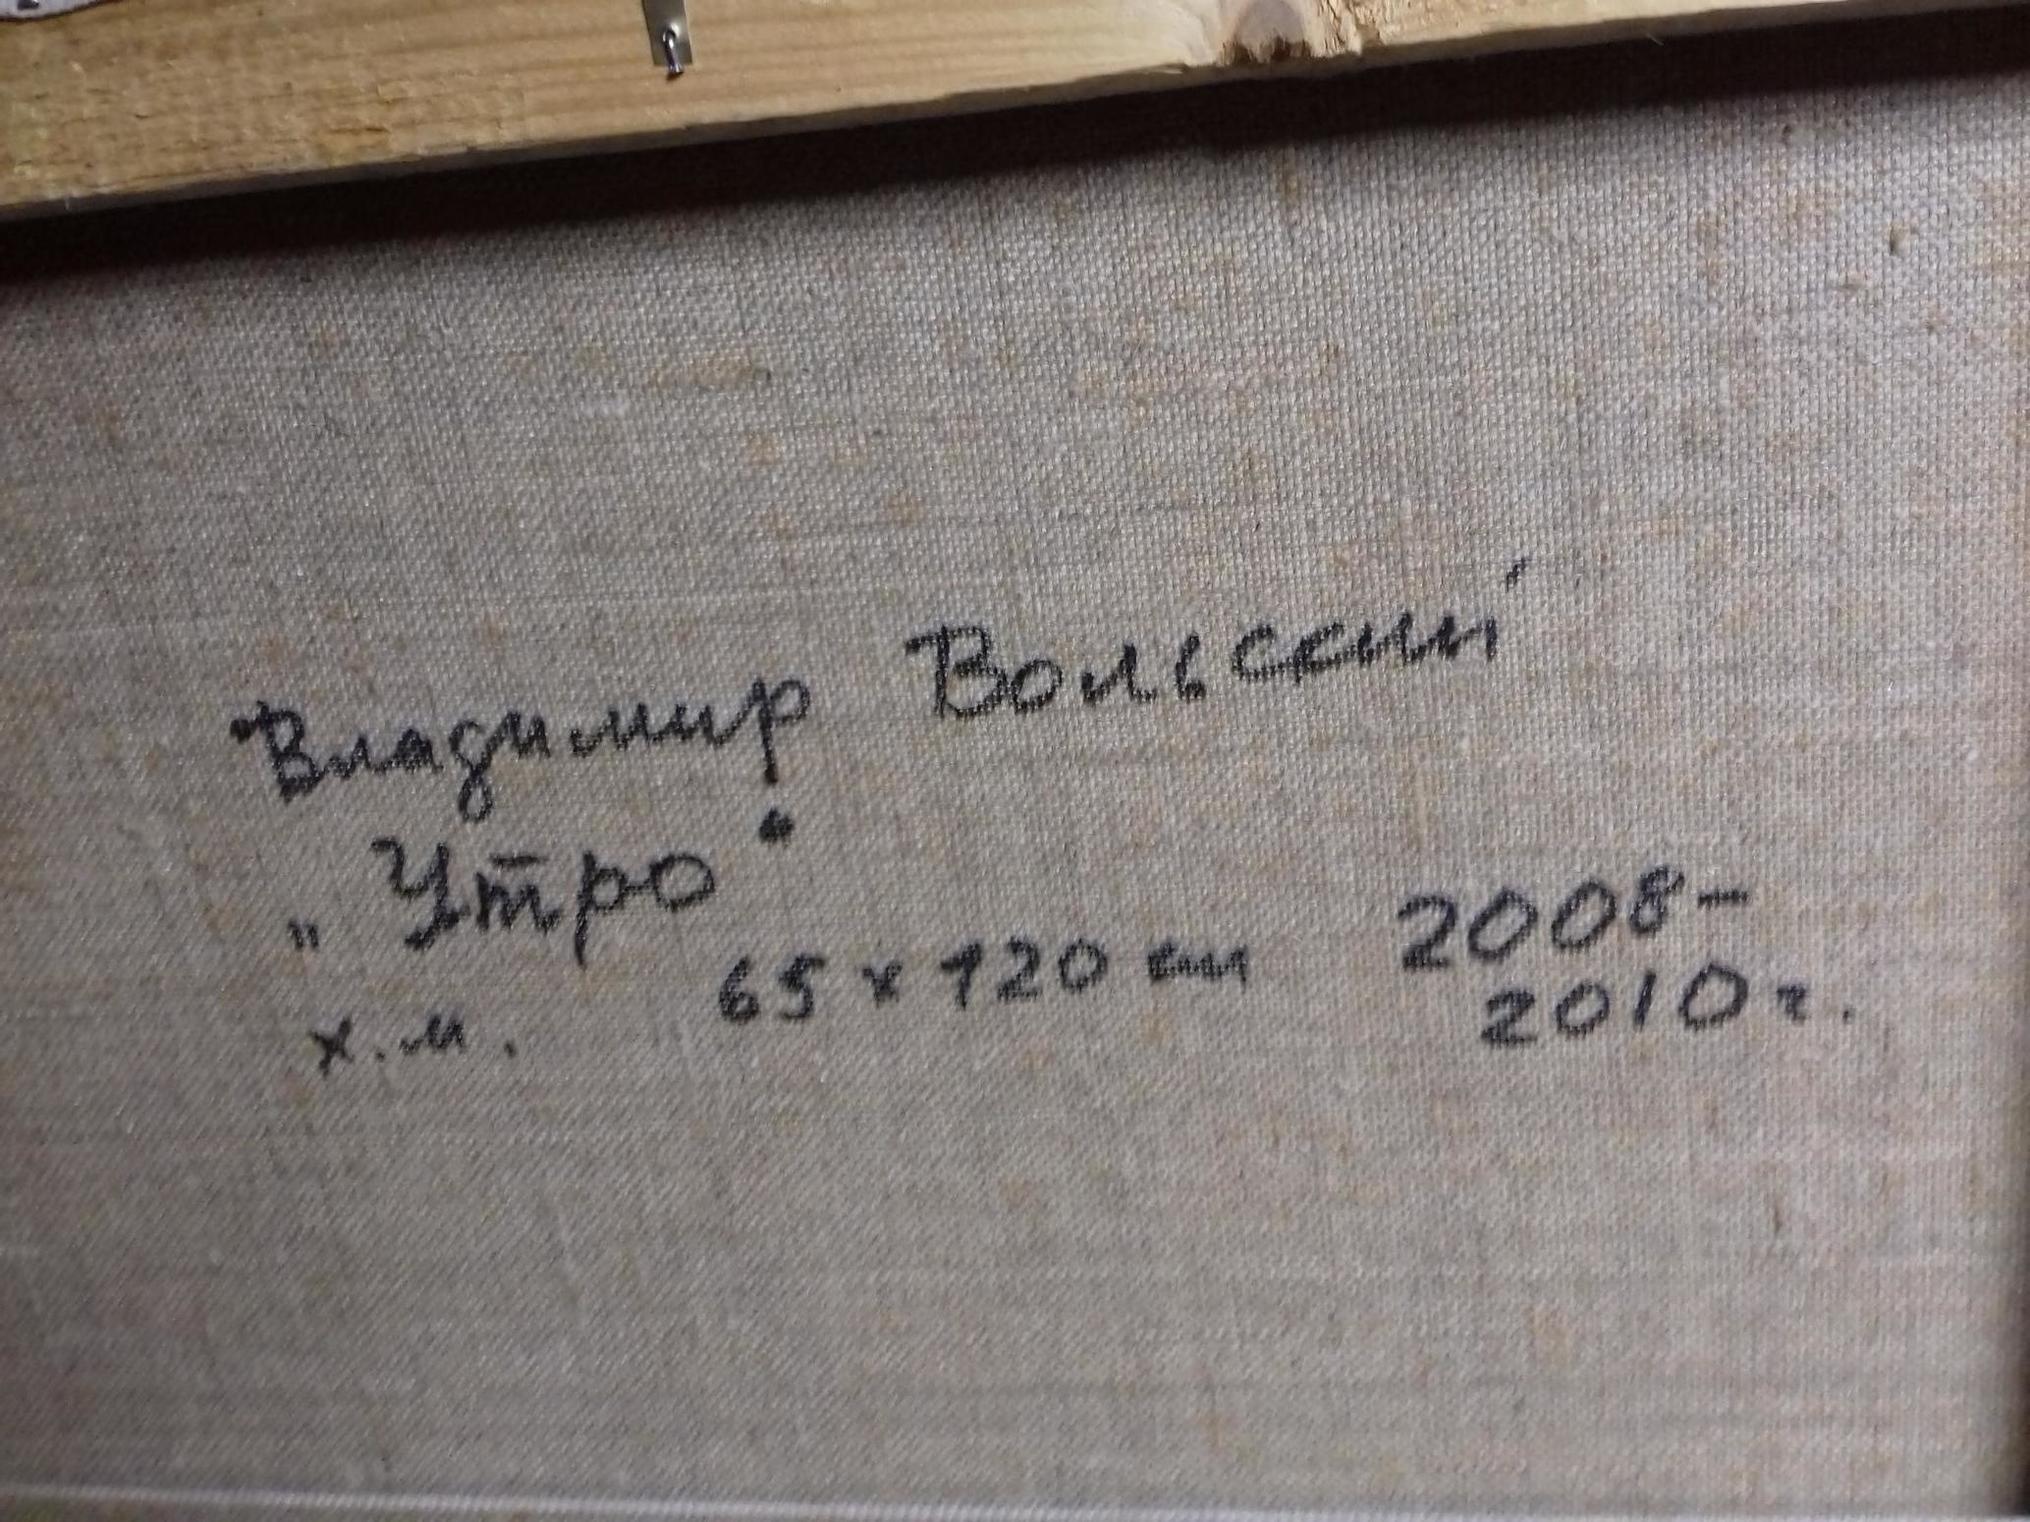 Владимир Вольский
„Утро“
х.м. 65 х 120 см 2008-
2010 г.